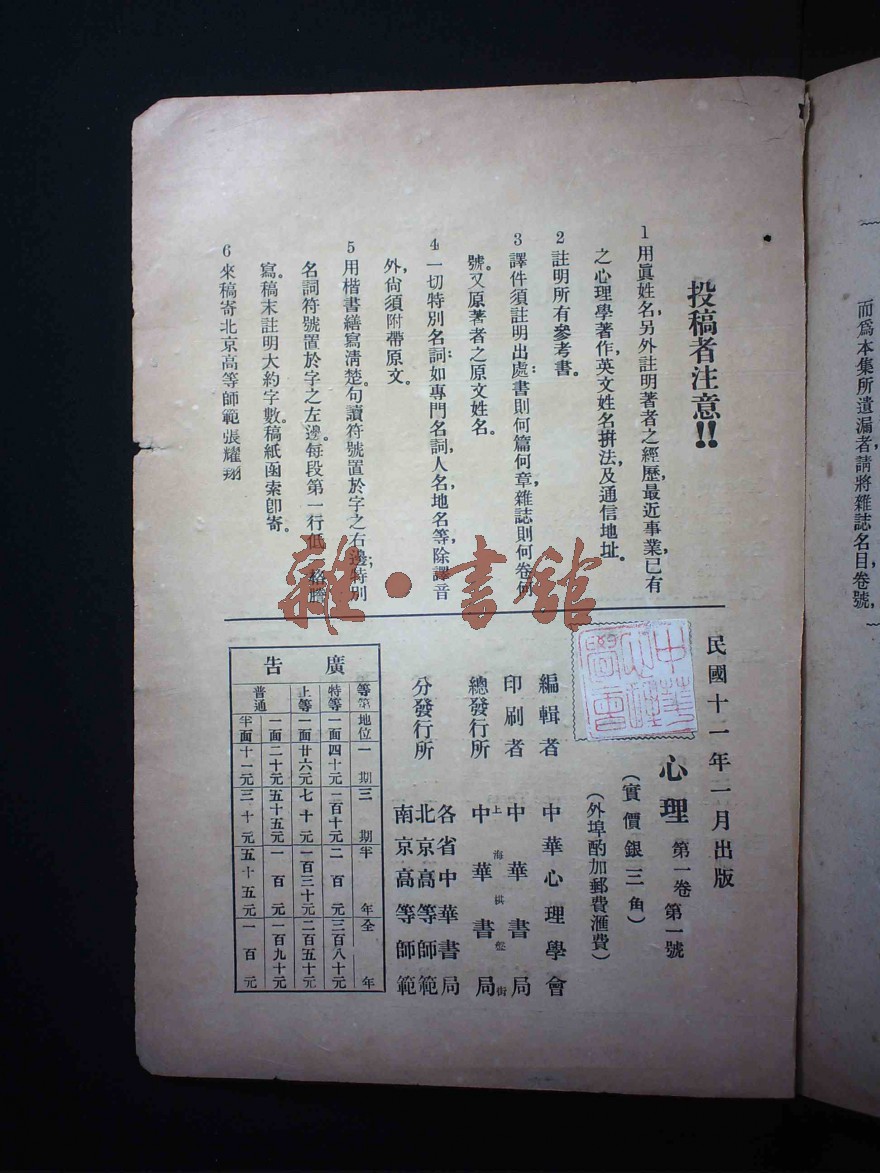 投稿者注意!!
1 用眞姓名,另外註明著者之經歷,最近事業,已有
之心理學著作,英文姓名拼法及通信地址.
2 註明所有參考書.
3 譯件須註明出處:書則何篇何章,雜誌則何卷何
號.又原著者之原文姓名.
4 一切特別名詞:如專門名詞,人名,地名等,除譯音
外,尙須附帶原文.
5 用楷書繕寫淸楚.句讀符號置於字之右邊,特別
名詞符號置於字之左邊.每段第一行低一格謄
寫.稿末註明大約字數.稿紙函索卽寄.
6 來稿寄北京高等師範張耀翔
民國十一年一月出版
心理 第一卷 第一號
(實價銀三角)
(外埠酌加郵費滙費)
編輯者 中華心理學會
印刷者 中華書局
上海棋盤街
總發行所 中華書局
各省中華書局
分發行所 北京高等師範
南京高等師範
廣告
等第 地位 一期 三期 半年 全年
特等 一面 四十元 一百十元 二百元 三百八十元
上等 一面 廿六元 七十元 一百三十元 二百五十元
普通 一面 二十元 五十五元 一百元 一百九十元
半面 十一元 三十元 五十五元 一百元
雜·書館
而爲本集所遺漏者,請將雜誌名目,卷號,